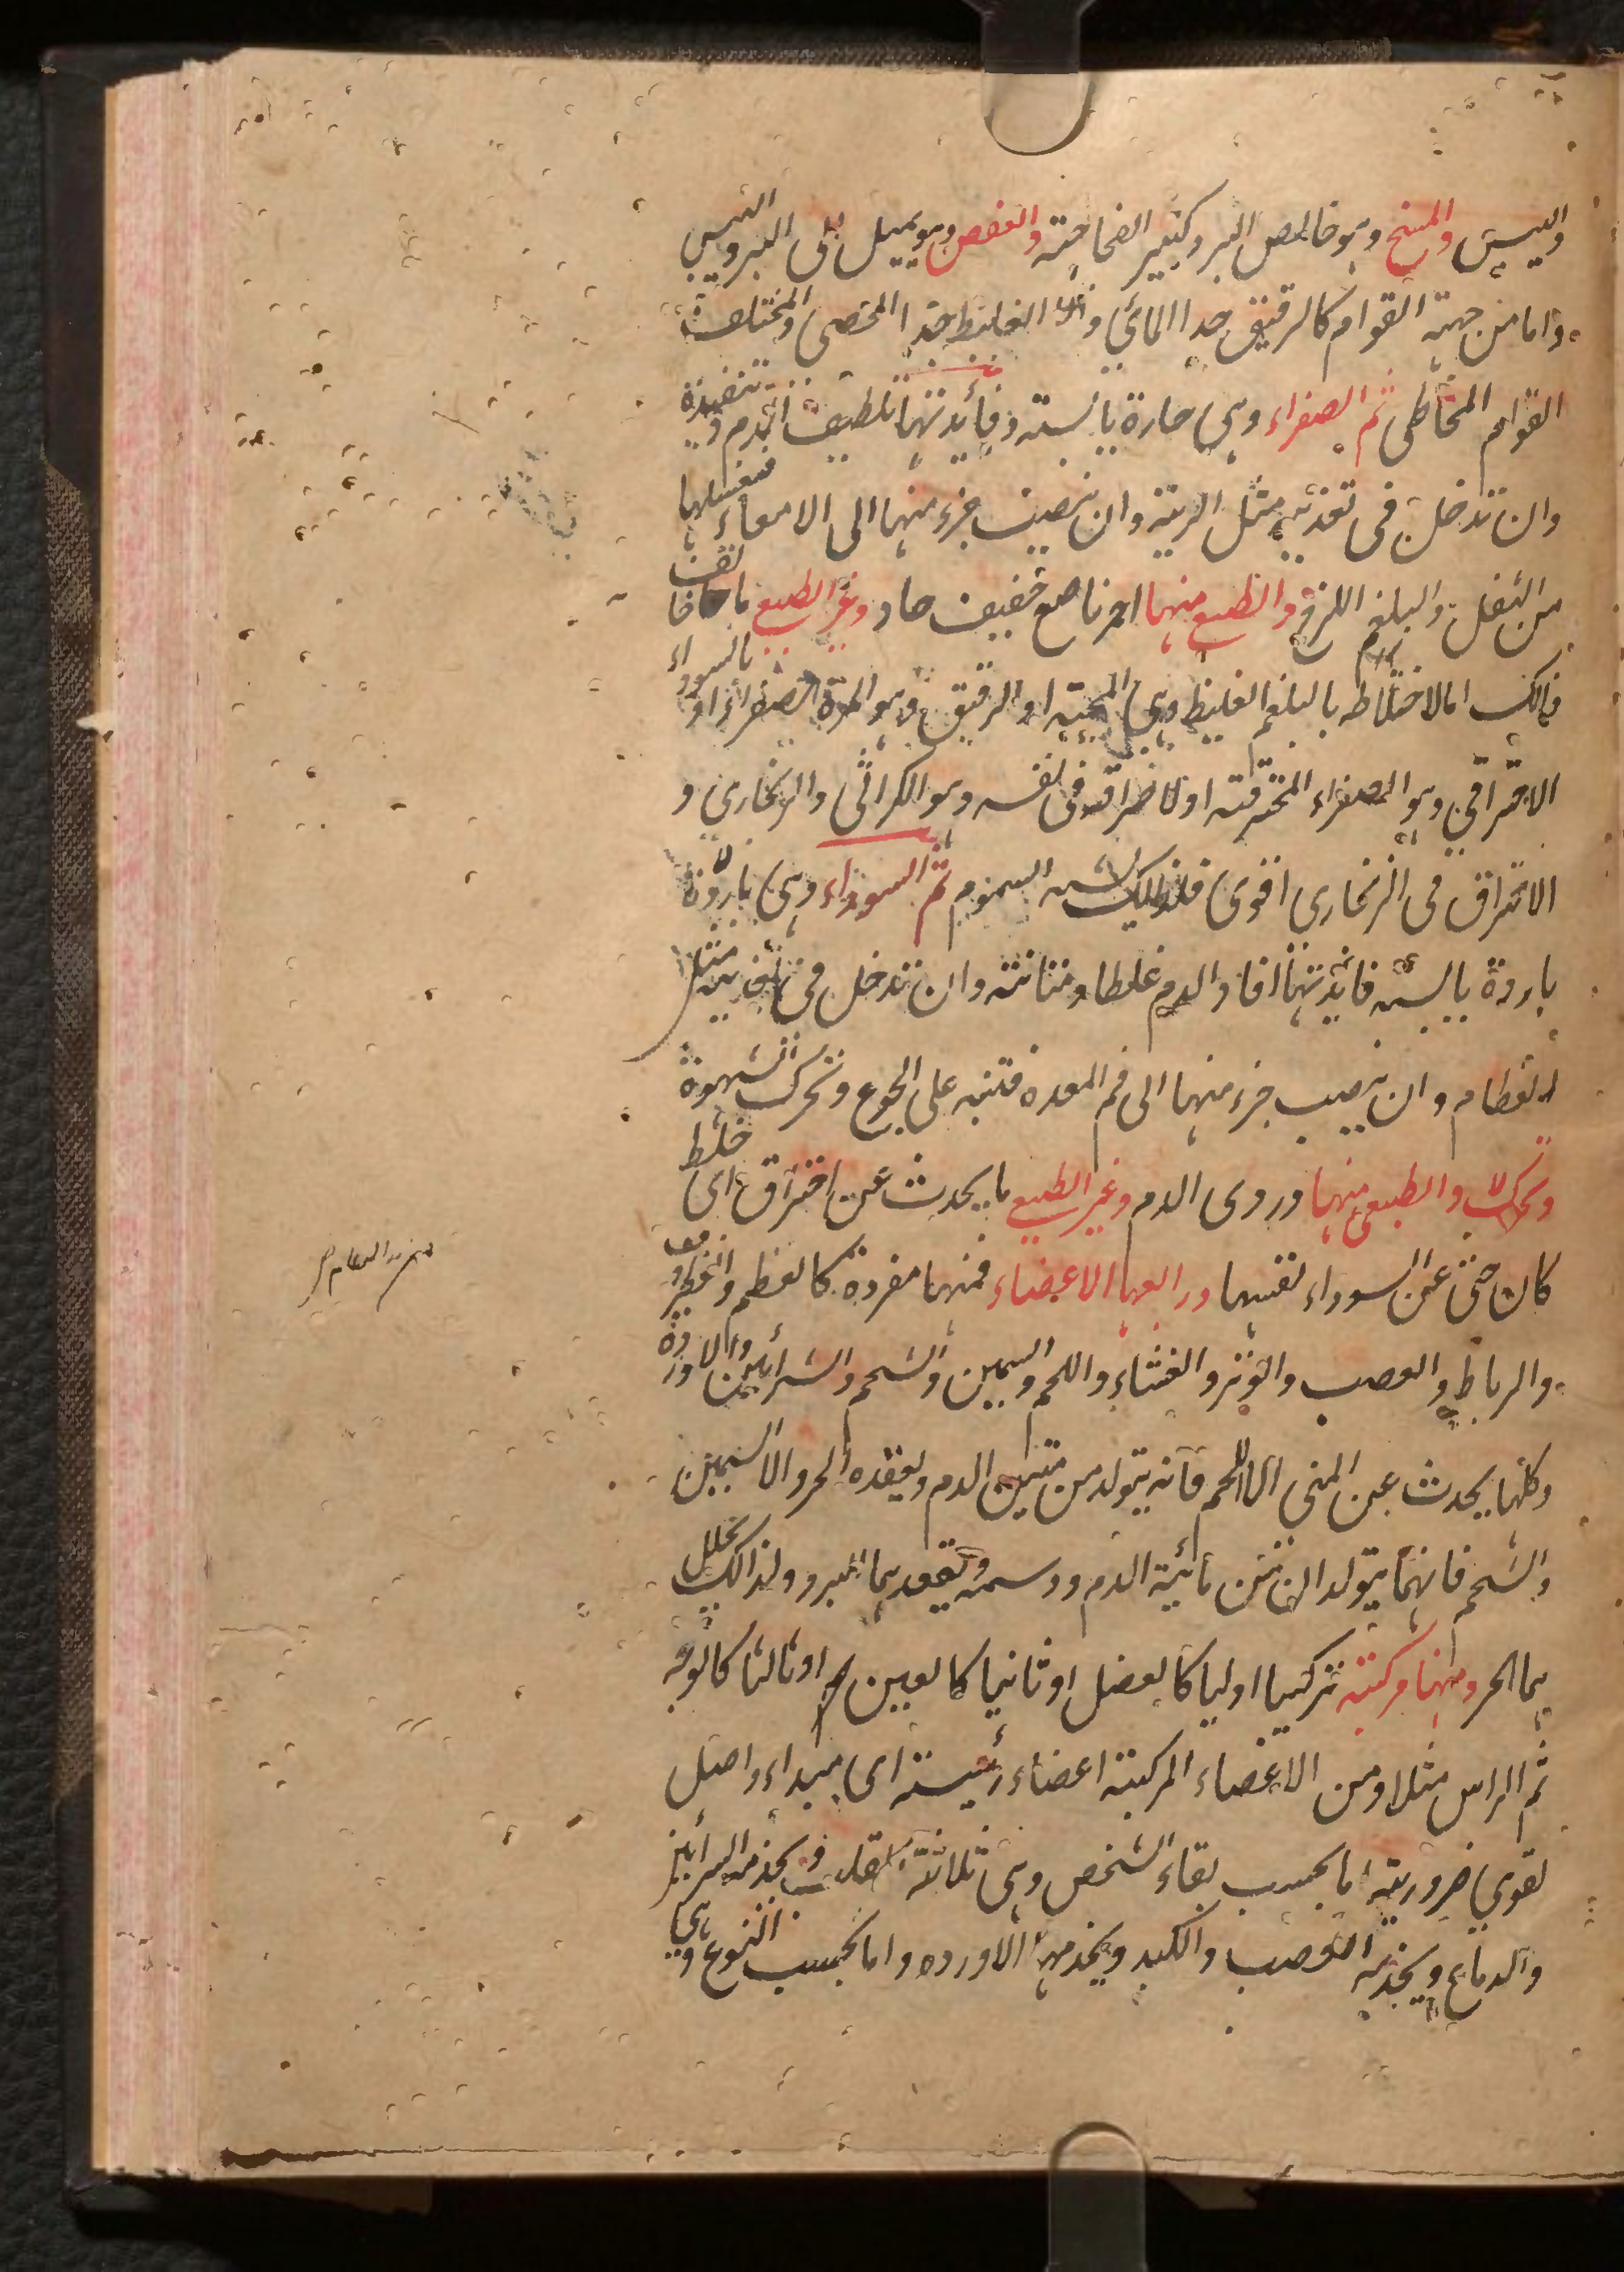 واليبس والمسخ وهو خالص البرد كثير الفجاجة والعفص وهو يميل الى البرد واليبس
واما من جهة القوام كالرقيق جدا المائي والغليظ جدا الجصي والمختلف
القوام المخاطي ثم الصفراء وهي حارة يابسة وفائدتها تلطيف الدم وتنفيذه
وان تدخل في تغذية مثل الرية وان ينصب جزء منها الى الامعاء فتغسلها
من الثفل والبلغم اللزج والطبيعي منها احمر ناصع خفيف حاد وغير الطبيعي ما خالف
ذالك اما لاختلاطه بالبلغم الغليظ وهي المحية او الرقيق وهو المرة الصفراء او بالسوداء
الاحتراقي وهو الصفراء المحترقة او لاحتراقه في نفسه وهو الكراثي والزنجاري و
الاحتراق في الزنجاري اقوى فلذلك يشبه السموم ثم السوداء وهي باردة
باردة يابسة فائدتها افاد الدم غلظا ومتانة وان تدخل في تغذية مثل
العظام وان ينصب جزء منها الى فم المعده فتنبه على الجوع وتحرك الشهوة
وتحرك والطبيعي منها دردي الدم وغير الطبيعي ما يحدث عن احتراق اي خلط
كان حتى عن السوداء نفسها ورابعها الاعضاء فمنها مفردة كالعظم والغضروف
والرباط والعصب والوتر والغشاء واللحم والسمين والشحم والشرايين والاوردة
وكلها يحدث عن المني الا اللحم فانه يتولد من متين الدم ويعقده الحر والا السمين
والشحم فانهما يتولدان من مائية الدم ودسمه ويعقدهما البرد ولذالك يحلل
هما الحر ومنها مركبة تركيبا اوليا كالعضل او ثانيا كالعين او ثالثا كالوجه
ثم الراس مثلا ومن الاعضاء المركبة اعضاء رئيسة اي مبداء واصل
لقوي ضرورية اما بحسب بقاء الشخص وهي ثلاثة القلب ويخدمه الشرايين
والدماغ ويخدمه العصب والكبد ويخدمها الاورده واما بحسب النوع وهي